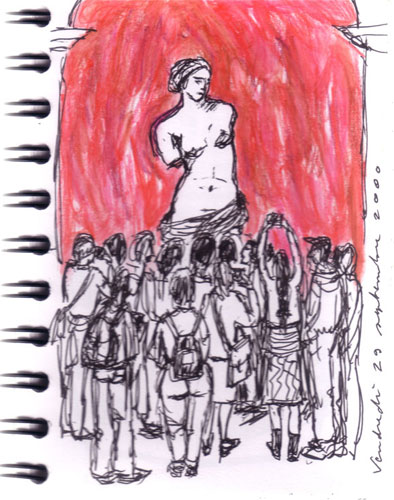 Vendredi 29 septembre 2000